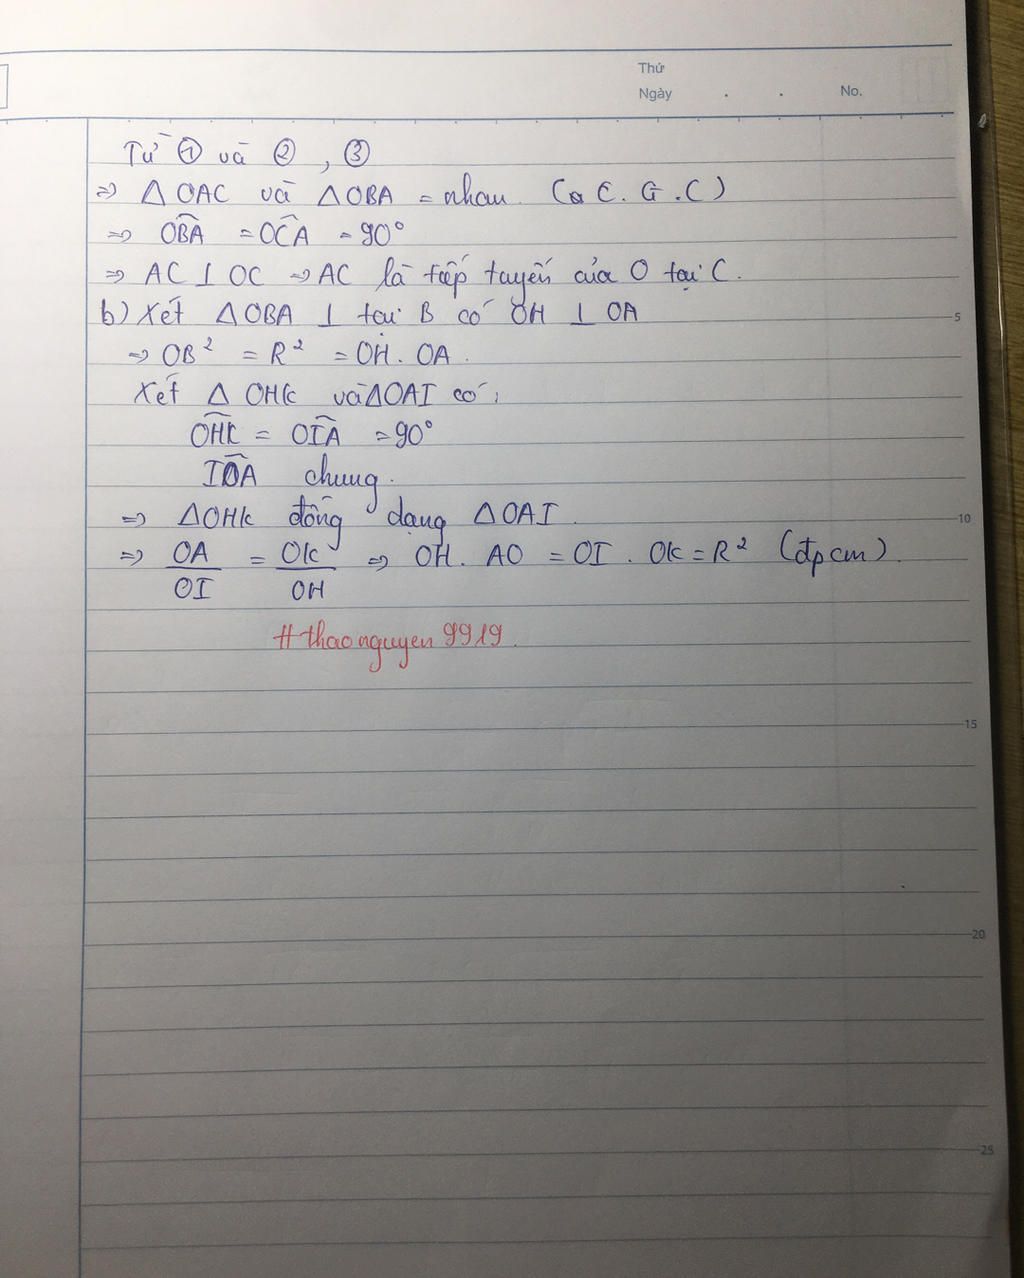 Thứ
Ngày . . No.
Từ ① và ② , ③
=> △ OAC và △ OBA = nhau (a C. G .C)
=> OBA = OCA = 90°
=> AC ⊥ OC => AC là tiếp tuyến của O tại C.
b) Xét △ OBA ⊥ tại B có OH ⊥ OA
=> OB² = R² = OH. OA.
Xét △ OHK và △OAI có:
OHK = OIA = 90°
IOA chung.
=> △OHK đồng dạng △OAI.
=> OA/OI = OK/OH => OH. AO = OI. OK = R² (đpcm).
#thaonguyen9919.
5
10
15
20
25